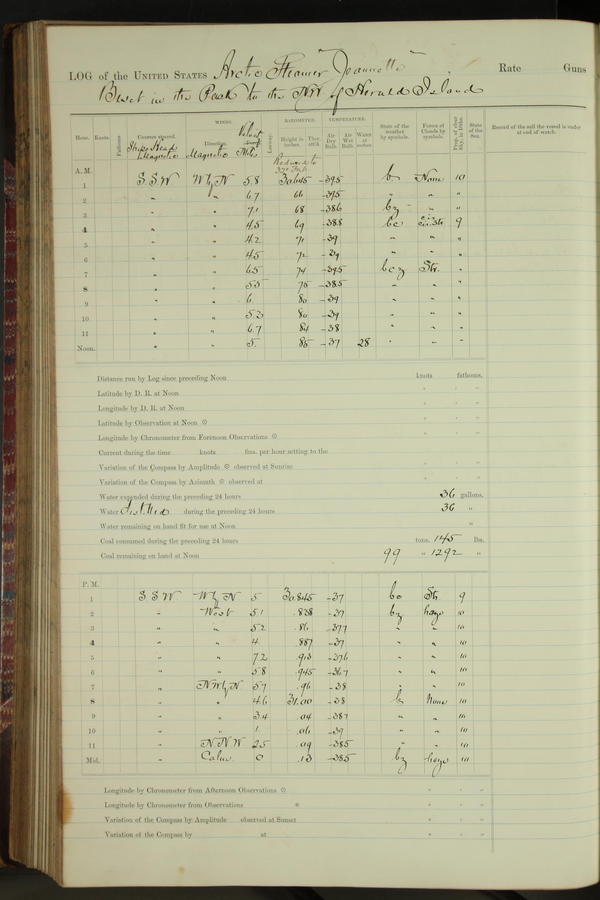 LOG of the UNITED STATES Arctic Steamer "Jeannette" Rate Guns
Beset in the Pack to the NW of Herald Island
WINDS. BAROMETER. TEMPERATURE.
Hour. Knots. Fathoms Courses steered. Direction. Leeway. Height in inches. Ther. att'd. Air Dry Bulb. Air Wet Bulb. Water at surface. State of the weather by symbols. Forms of Clouds by symbols. Prop. of clear Sky, in 10ths. State of the Sea. Record of the sail the vessel is under at end of watch.
Ship's Head Magnetic Magnetic Miles
Reduced to 32° Fah.
A. M.
1 SSW W by N 5.8 30.645 -39.5 b None 10
2 " " 6.7 66 -39.5 " " "
3 " " 7.1 68 -38.6 bz " "
4 " " 4.5 69 -38.8 bc 9
5 " " 4.2 71 -39 " " "
6 " " 4.5 72 -39 " " "
7 " " 6.5 74 -39.5 bcz Str. "
8 " " 5.5 75 -38.5 " " "
9 " " 6. 80 -39 " " "
10 " " 5.2 80 -39 " " "
11 " " 6.7 84 -38 " " "
Noon. " " 5. 85 -37 28 " " "
Distance run by Log since preceding Noon knots fathoms.
Latitude by D. R. at Noon ° ′ ″
Longitude by D. R. at Noon ° ′ ″
Latitude by Observation at Noon ☉ ° ′ ″
Longitude by Chronometer from Forenoon Observations ☉ ° ′ ″
Current during the time knots fms. per hour setting to the
Variation of the Compass by Amplitude ☉ observed at Sunrise ° ′ ″
Variation of the Compass by Azimuth ☉ observed at ° ′ ″
Water expended during the preceding 24 hours 36 gallons.
Water distilled during the preceding 24 hours 36 "
Water remaining on hand fit for use at Noon "
Coal consumed during the preceding 24 hours tons. 145 lbs.
Coal remaining on hand at Noon 99 " 1292 "
P. M.
1 SSW W by N 5 30.845 -37 bc Str 9
2 " West 5.1 .828 -37 bz haze 10
3 " " 5.2 .86 -37.7 " " 10
4 " " 4. .887 -37 " " 10
5 " " 7.2 .913 -37.6 " " 10
6 " " 5.8 .945 -36.7 " " 10
7 " NW by N 5.7 .96 -38 " " 10
8 " " 4.6 31.00 -38 b None 10
9 " " 3.4 .04 -38.7 " " 10
10 " " 1. .06 -39 " " 10
11 " NNW 2.5 .09 -38.5 " " 10
Mid. " Calm 0 .13 -38.5 bz haze 10
Longitude by Chronometer from Afternoon Observations ☉ ° ′ ″
Longitude by Chronometer from Observations * ° ′ ″
Variation of the Compass by Amplitude observed at Sunset ° ′ ″
Variation of the Compass by at ° ′ ″